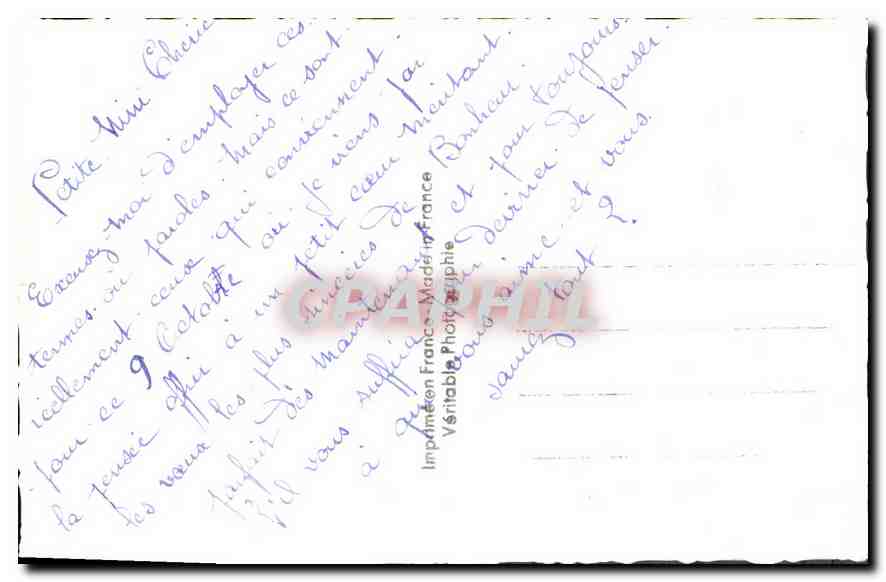 Petite Mimi Chérie
Excusez-moi d'employer ces
termes ou paroles. Mais ce sont
réellement ceux qui conviennent.
Pour ce 9 Octobre où je viens par
la pensée offrir à un petit cœur méritant
les vœux les plus sincères de Bonheur
parfait dès maintenant et pour toujours.
S'il vous suffira pour deviner de penser
à qui vous aime et vous
savez tout ?
Imprimé en France - Made in France
Véritable Photographie
CPAPHIL